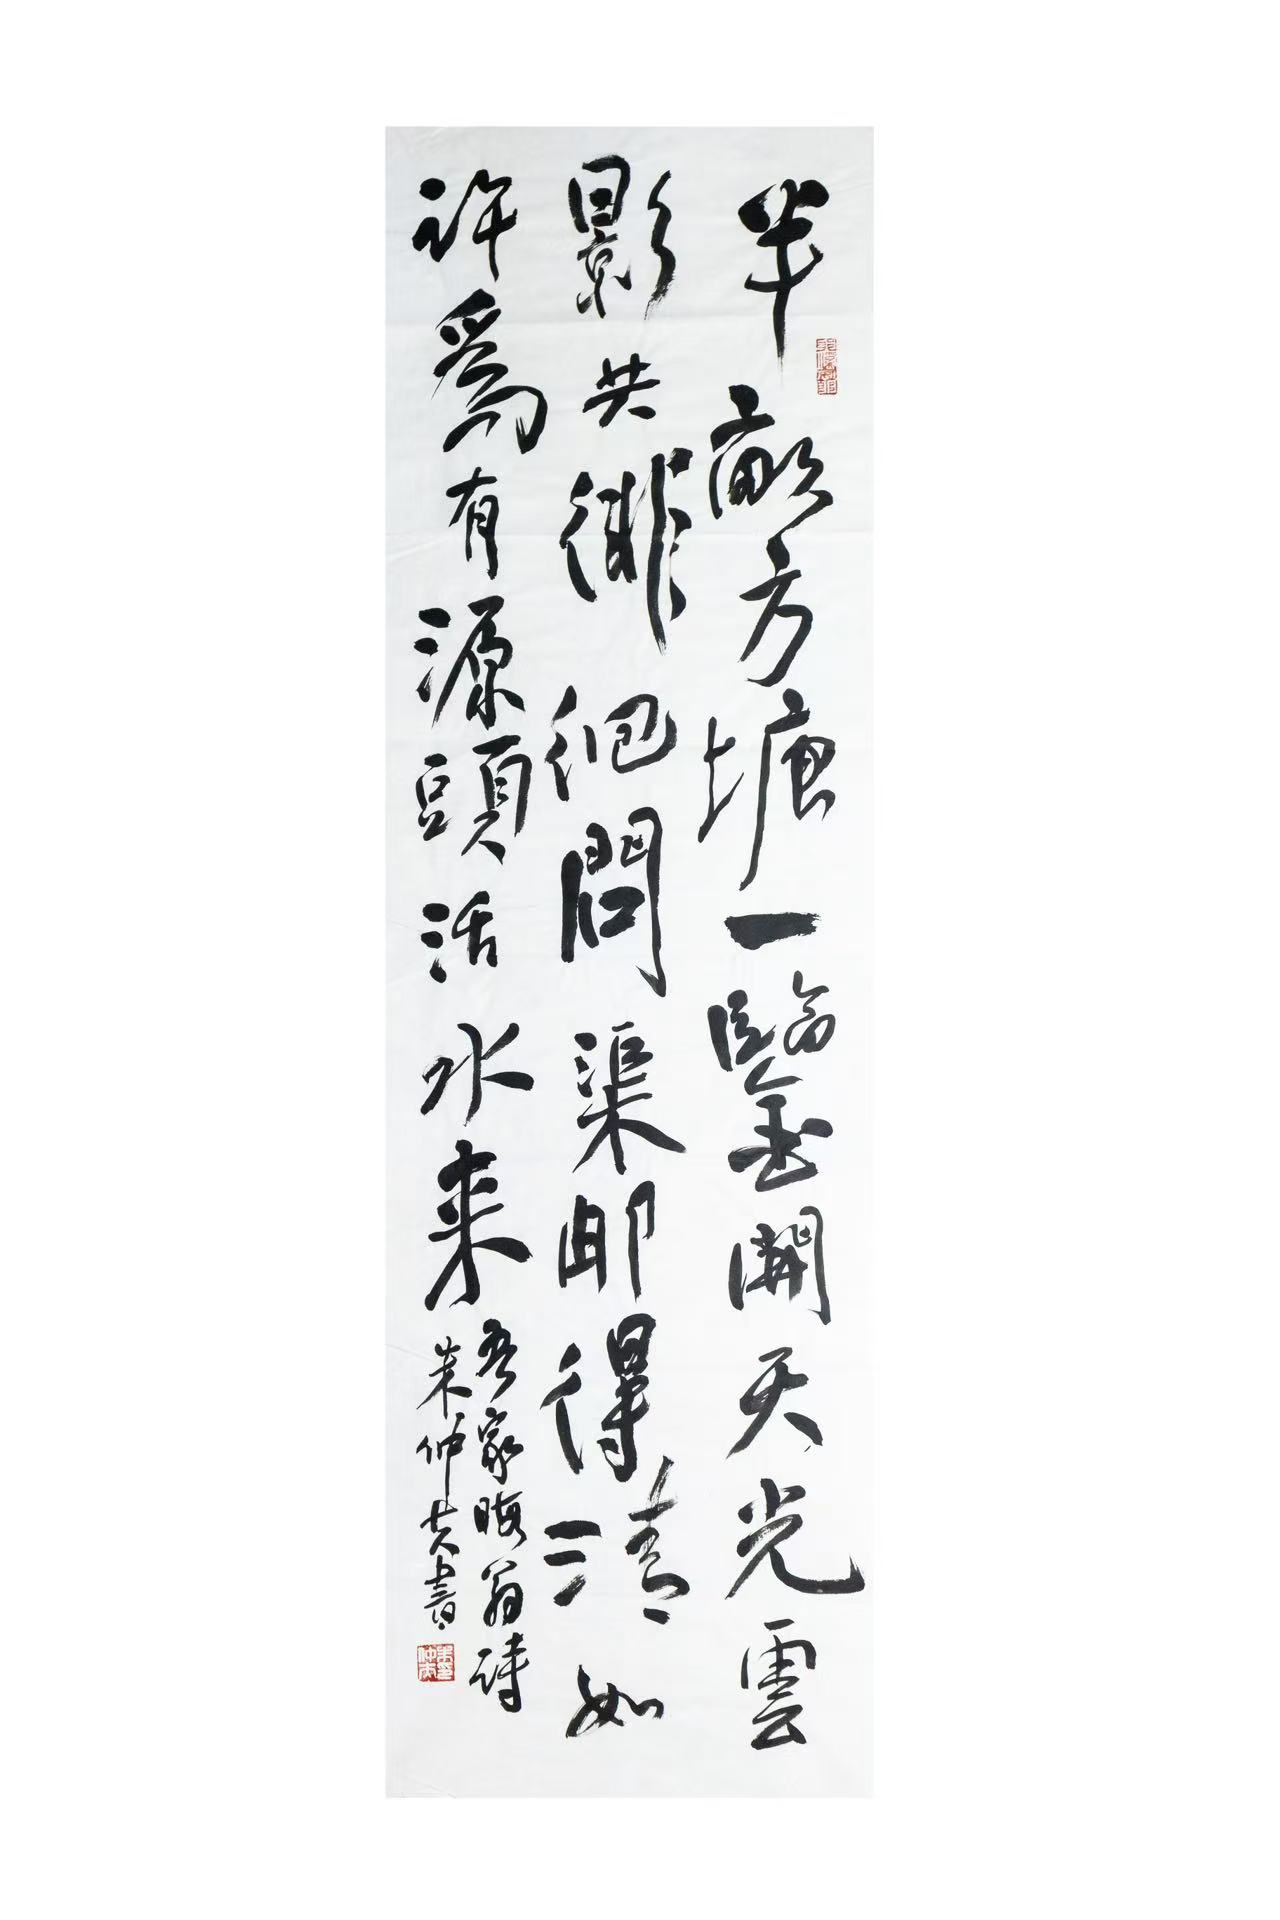 半畝方塘一鑒開天光雲
影共徘徊問渠那得清如
許為有源頭活水來
吾家晦翁詩
朱仲夫書